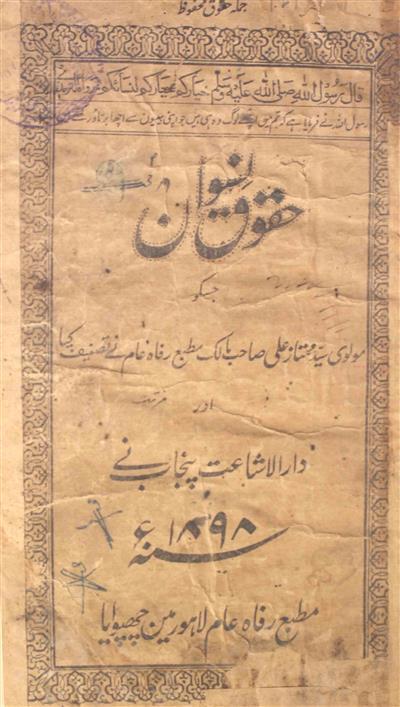 جملہ حقوق محفوظ
قال رسول اللہ صلی اللہ علیہ وسلم خیارکم خیارکم لنسائکم
رسول اللہ نے فرمایا ہے کہ تم میں اچھے لوگ وہ ہی ہیں جو اپنی بیبیوں سے اچھا برتاؤ
حقوق نسواں
جسکو
مولوی سید ممتاز علی صاحب مالک مطبع رفاہ عام نے تصنیف کیا
اور
دار الاشاعت پنجاب نے
سنہ ۱۸۹۸ء
مطبع رفاہ عام لاہور مین چھپوایا